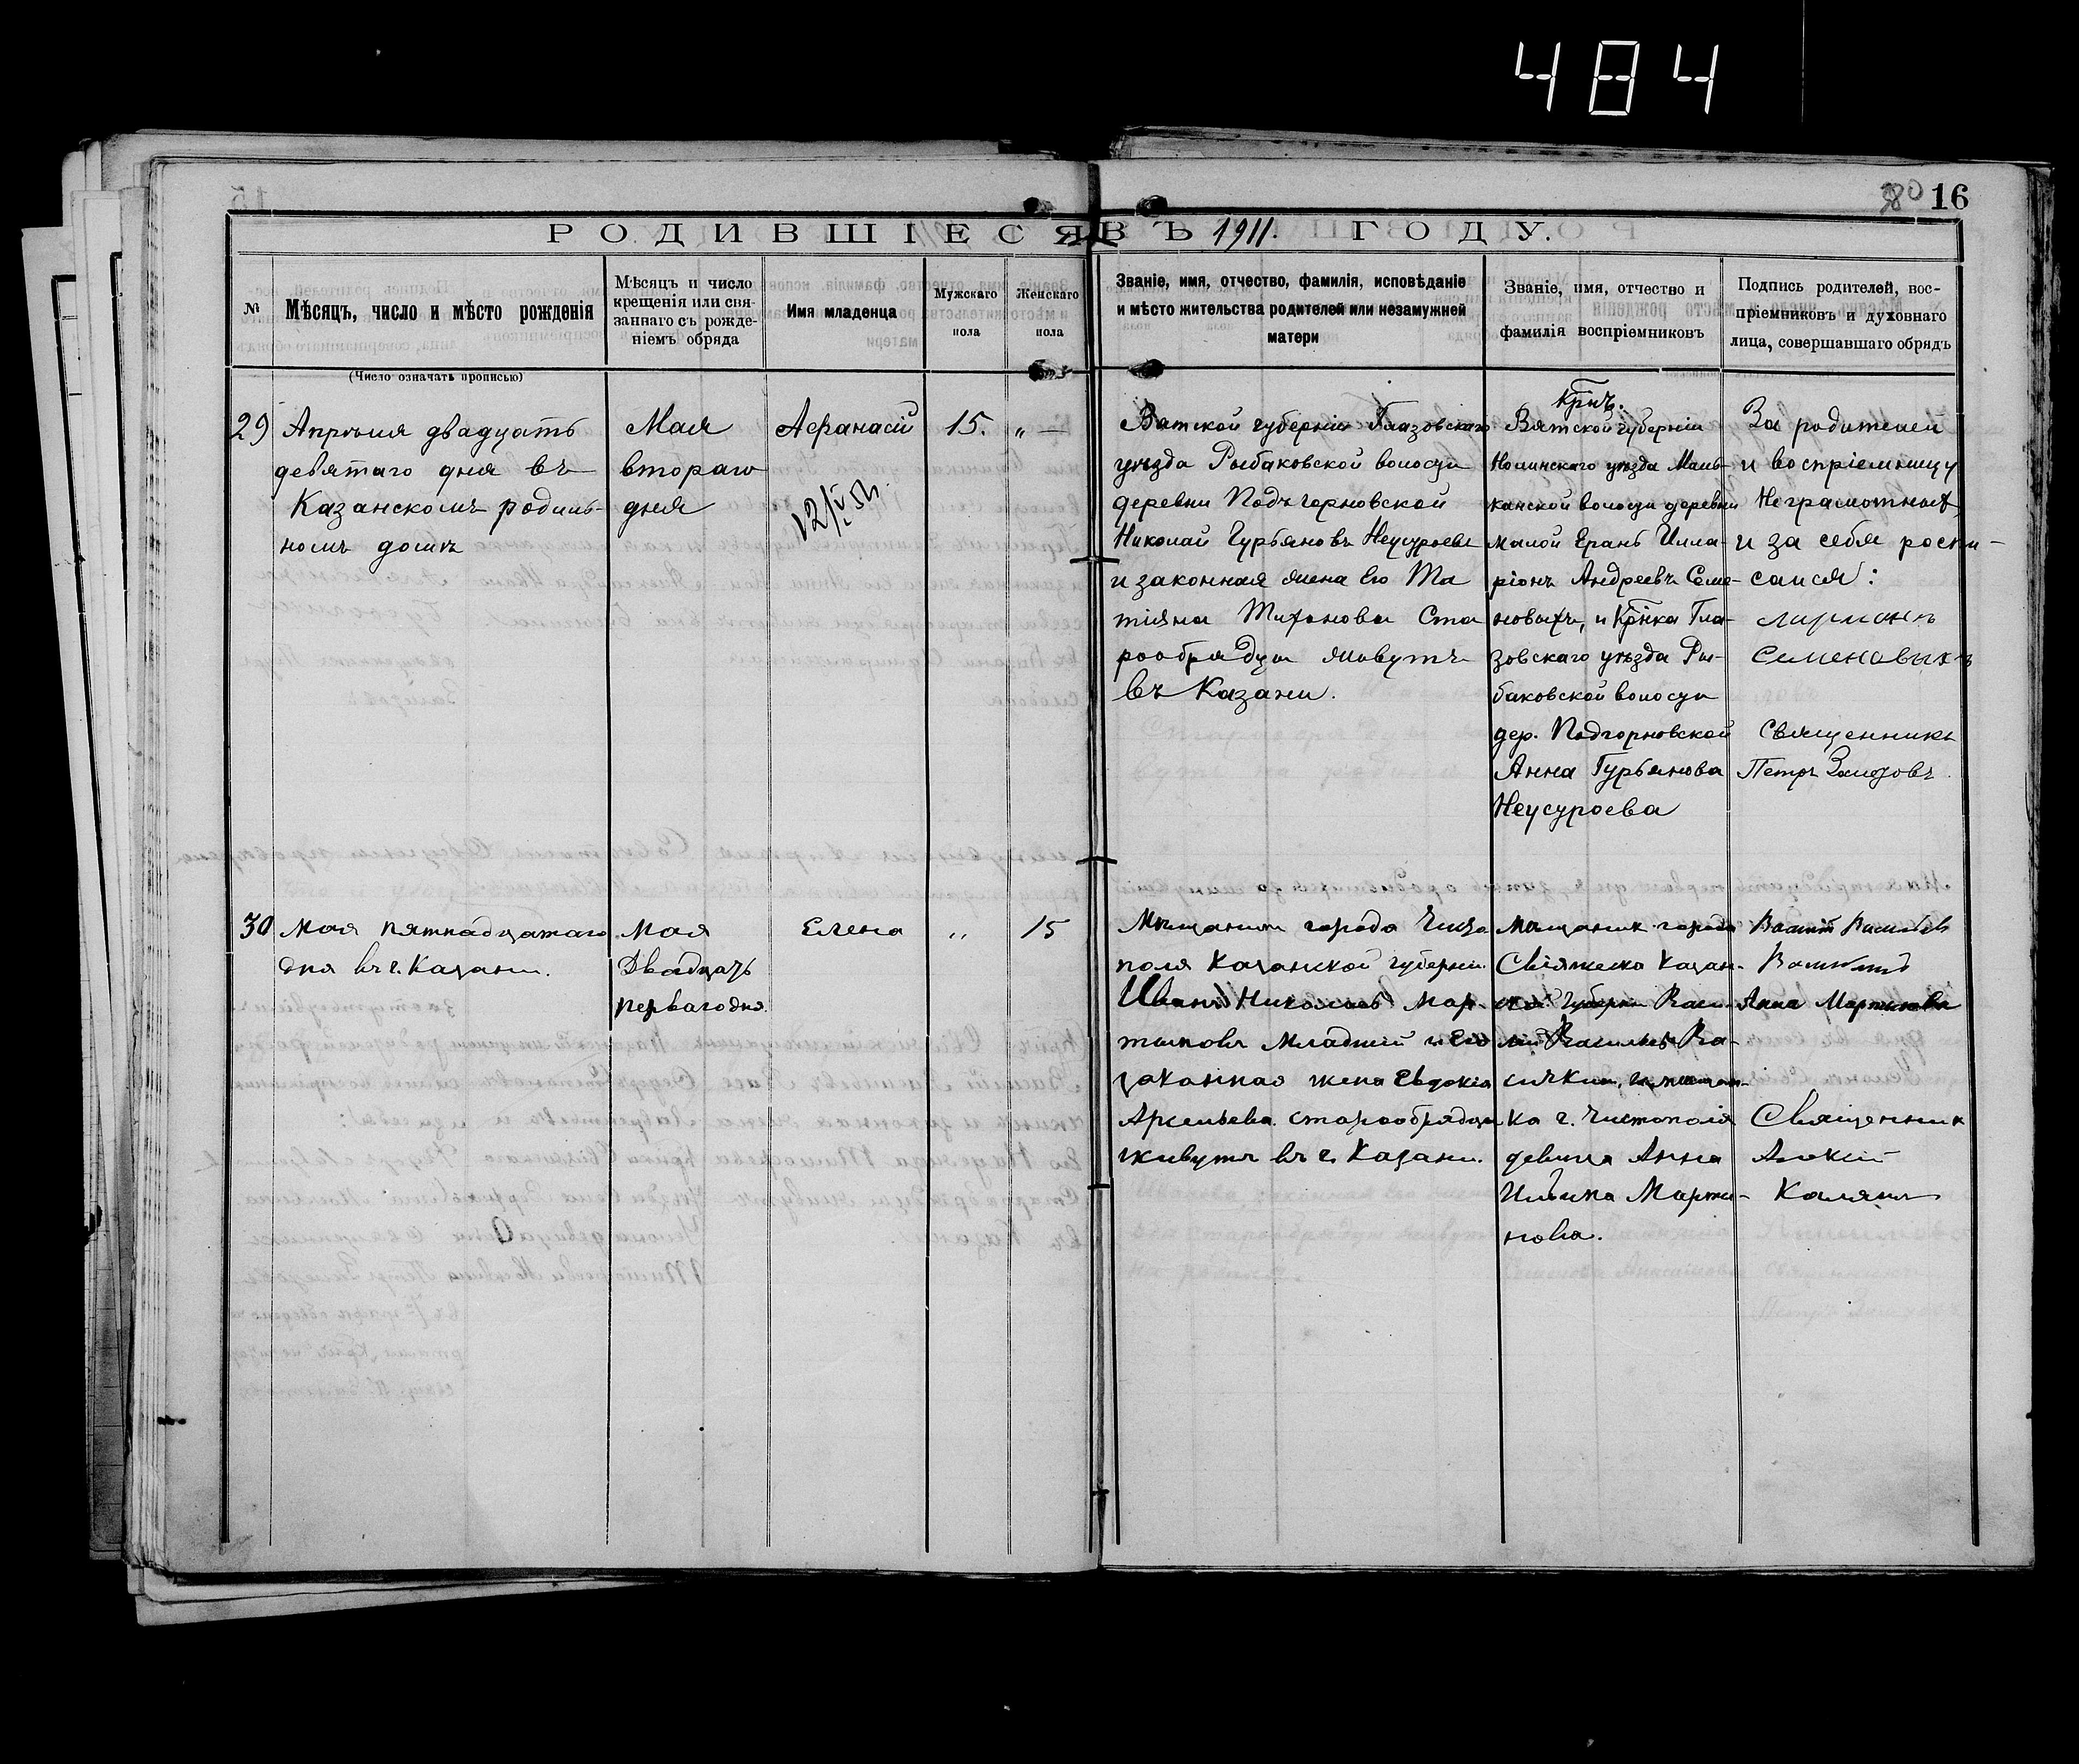 484
380 16
РОДИВШІЕСЯ ВЪ 1911. ГОДУ.
№
Мѣсяцъ, число и мѣсто рожденія
(Число означать прописью)
Мѣсяцъ и число
крещенія или свя-
заннаго съ рожде-
ніемъ обряда
Имя младенца
Мужскаго
пола
Женскаго
пола
Званіе, имя, отчество, фамилія, исповѣданіе
и мѣсто жительства родителей или незамужней
матери
Званіе, имя, отчество и
фамилія воспріемниковъ
Подпись родителей, вос-
пріемниковъ и духовнаго
лица, совершавшаго обрядъ
29
Апрѣля двадцать
девятаго дня въ
Казанскомъ родиль-
номъ домѣ
Мая
втораго
дня
Афанасій
15.
„ —
Вятской губерніи Глазовскаго
уѣзда Рыбаковской волости
деревни Подъгорновской
Николай Гурьяновъ Неусуроевъ
и законная жена его Та
тіяна Тихонова Ста
рообрядцы живутъ
въ Казани.
Крнъ.
Вятской губерніи
Нолинскаго уѣзда
канской волости деревни
малой Ерань Илла-
ріонъ Андреевъ Семе-
новыхъ, и Крнка Гла-
зовскаго уѣзда Ры-
баковской волости
дер. Подгорновской
Анна Гурьянова
Неусуроева
За родителей
и воспріемницу
Неграмотныхъ
и за себя роспи-
сался:
Семеновыхъ
Священникъ
Петръ Залетовъ
30
Мая пятнадцатаго
дня въ г. Казани.
Мая
Двадцать
перваго дня.
Елена
„
15
Мѣщанинъ города Чисто
поля Казанской губерніи
Иванъ Николаевъ Мар-
тыновъ Младшій и его
законная жена Евдокія
Арсеньева старообрядцы
живутъ въ г. Казани.
мѣщанинъ города
Свіяжска Казан-
ской губерніи Васи-
лій Васильевъ Ва-
сичкин, и мѣщан-
ка г. Чистополя
девица Анна
Ильина Марты-
нова.
Василій Васильевъ
Анна Мартынова
Священник
Алекcій
Калягинъ